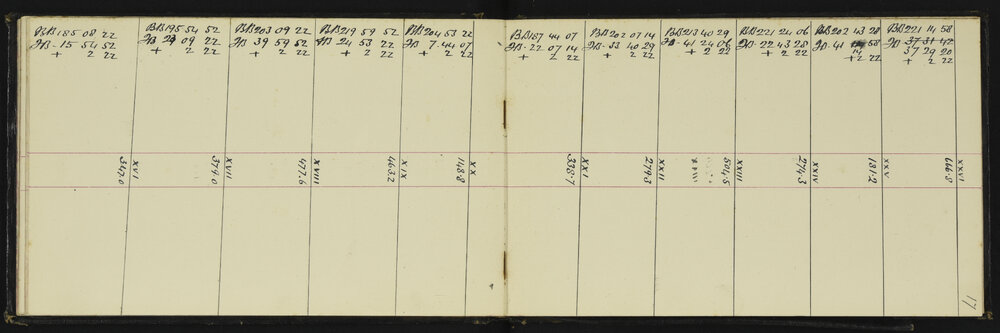 BB 185 08 22
FB -15 54 52
+ 2 22
BB 195 54 52
FB 29 09 22
+ 2 22
BB 203 09 22
FB 39 59 52
+ 2 22
BB 219 59 52
FB 24 53 22
+ 2 22
BB 204 53 22
FB 7 44 07
+ 2 22
BB 187 44 07
FB -22 07 14
+ 2 22
BB 202 07 14
FB -33 40 29
+ 2 22
BB 213 40 29
FB -41 24 06
+ 2 22
BB 221 24 06
FB -22 43 28
+ 2 22
BB 202 43 28
FB -41 14 58
+ 2 22
BB 221 14 58
FB 37 31 42
37 29 20
+ 2 22
XVI
347.0
XVII
379.0
XVIII
477.6
XIX
463.2
XX
148.8
XXI
338.7
XXII
279.3
XXIII
504.5
XXIV
274.3
XXV
181.2
XXVI
666.8
17